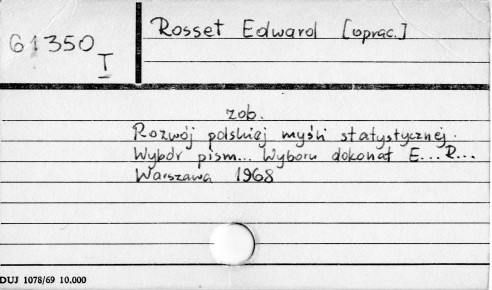 61350
I
Rosset Edward [oprac.]
zob.
Rozwój polskiej myśli statystycznej.
Wybór pism... Wyboru dokonał E... R...
Warszawa 1968
DUJ 1078/69 10.000